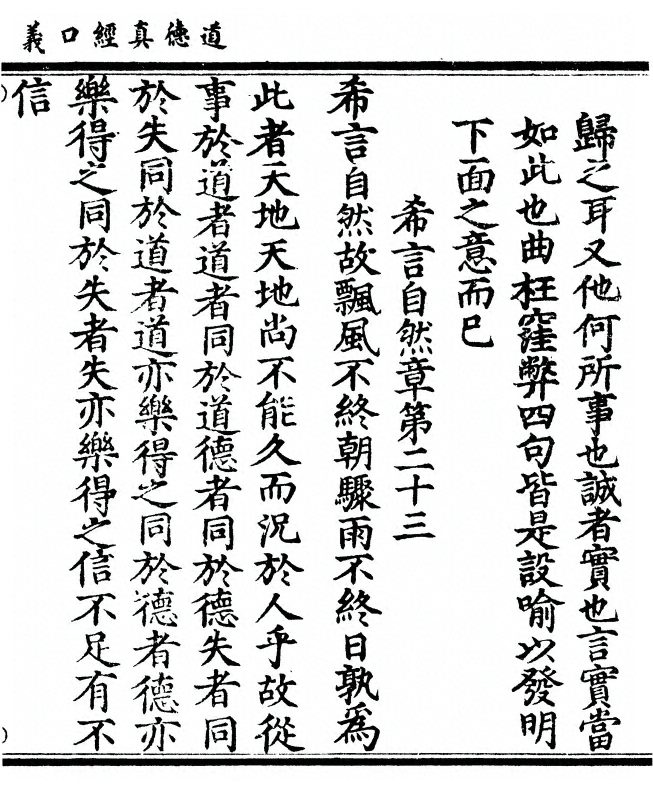 道德真經口義
歸之耳又他何所事也誠者實也言實當
如此也曲枉窪弊四句皆是設喻以發明
下面之意而已
希言自然章第二十三
希言自然故飄風不終朝驟雨不終日孰為
此者天地天地尚不能久而況於人乎故從
事於道者道者同於道德者同於德失者同
於失同於道者道亦樂得之同於德者德亦
樂得之同於失者失亦樂得之信不足有不
信